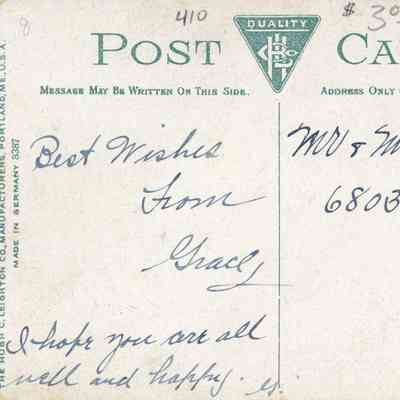 8
410
$ 3
QUALITY
POST CA
MESSAGE MAY BE WRITTEN ON THIS SIDE.
ADDRESS ONLY
THE HUGH C. LEIGHTON CO., MANUFACTURERS, PORTLAND, ME., U.S.A.
MADE IN GERMANY 8387
Best Wishes
From
Grace
I hope you are all
well and happy.
Mr & M
6803